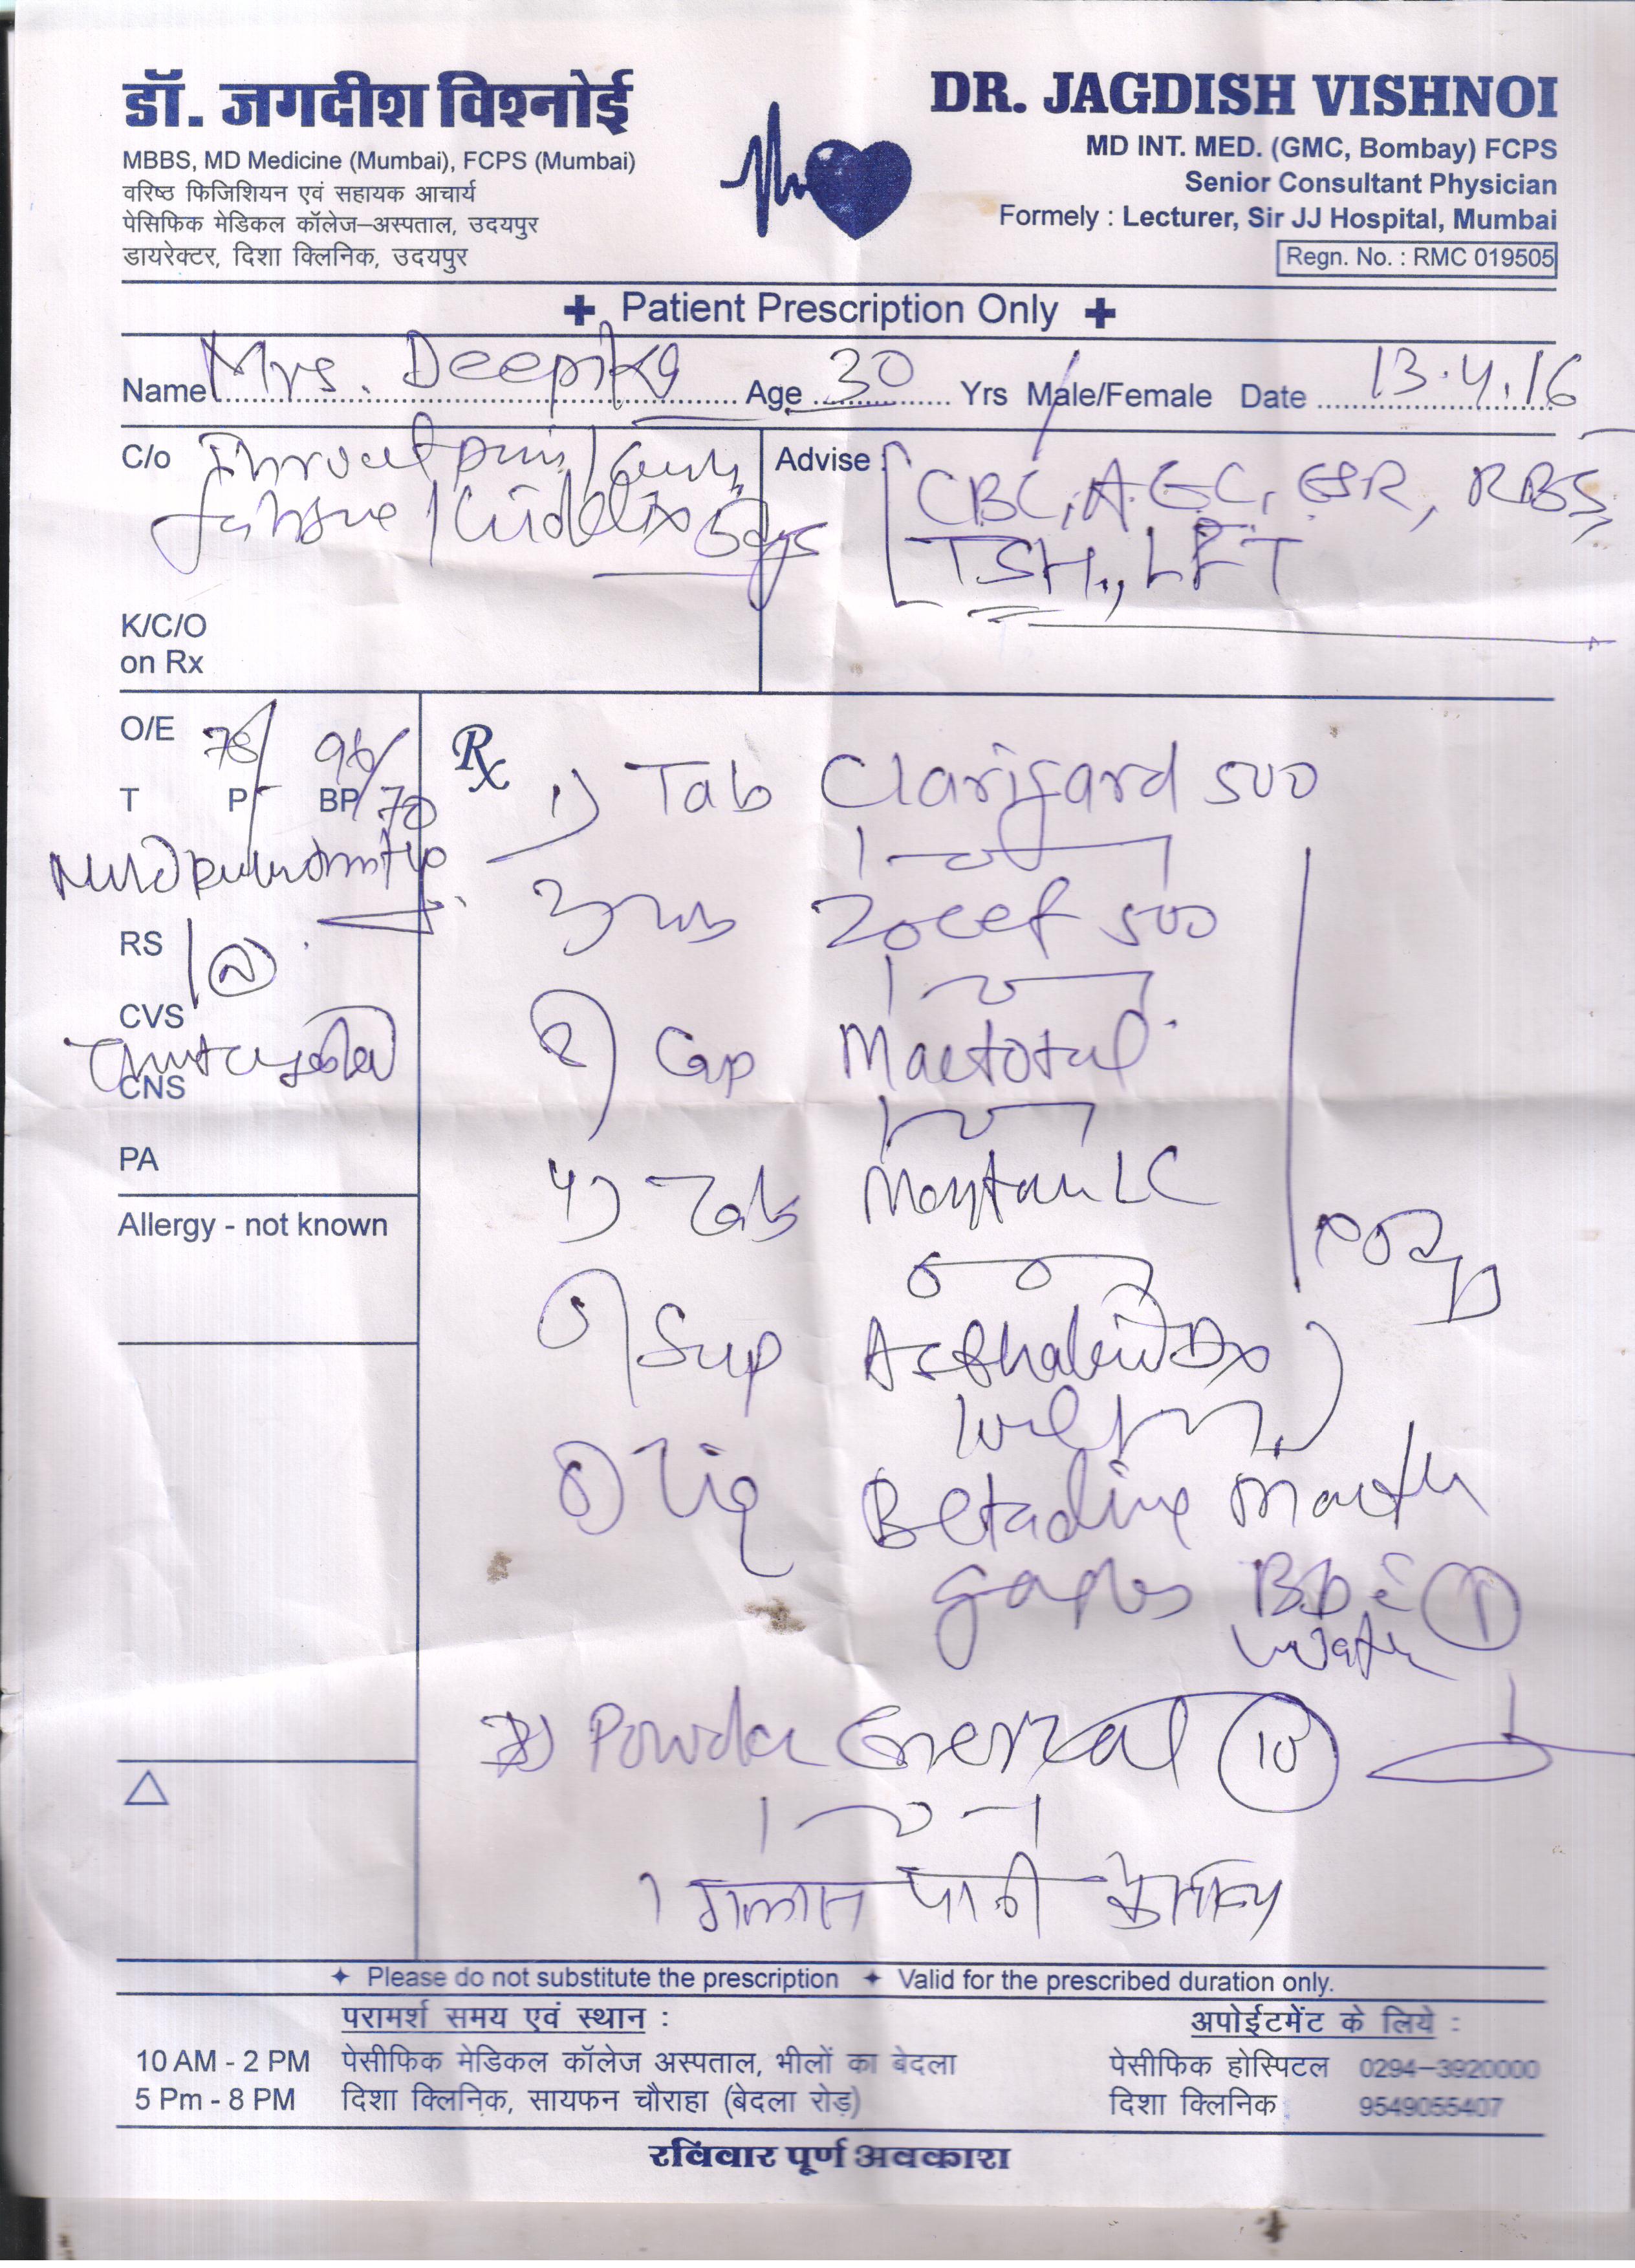 डॉ. जगदीश विश्नोई
MBBS, MD Medicine (Mumbai), FCPS (Mumbai)
वरिष्ठ फिजिशियन एवं सहायक आचार्य
पेसिफिक मेडिकल कॉलेज-अस्पताल, उदयपुर
डायरेक्टर, दिशा क्लिनिक, उदयपुर
DR. JAGDISH VISHNOI
MD INT. MED. (GMC, Bombay) FCPS
Senior Consultant Physician
Formely : Lecturer, Sir JJ Hospital, Mumbai
Regn. No. : RMC 019505
Patient Prescription Only
Name Mrs. Deepika Age 30 Yrs Male/Female Date 13.4.16
C/o Throat pain
5dys
Advise : CBC, A.G.C, ESR, RBS,
TSH, LFT
K/C/O
on Rx
O/E 78 96/
T P BP 70
RS N
CVS
CNS
PA
Allergy - not known
Rx
1) Tab Clarigard 500
Zocef 500
3) Cap Mactotal
4) Tab LC
5) Sup
6) Liq Betadine Mouth
gargles BD c
water
7) Powder Enerzal 10
1 गिलास पानी
Please do not substitute the prescription Valid for the prescribed duration only.
परामर्श समय एवं स्थान :
10 AM - 2 PM पेसीफिक मेडिकल कॉलेज अस्पताल, भीलों का बेदला
5 Pm - 8 PM दिशा क्लिनिक, सायफन चौराहा (बेदला रोड़)
अपोईटमेंट के लिये :
पेसीफिक होस्पिटल 0294-3920000
दिशा क्लिनिक 9549055407
रविवार पूर्ण अवकाश